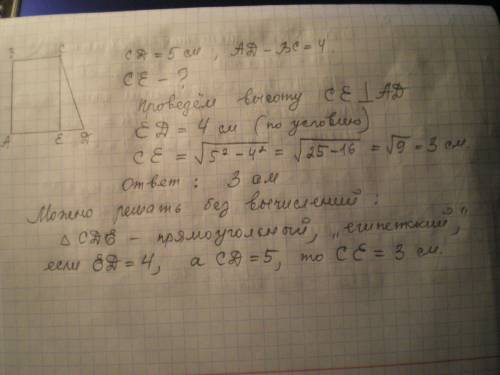 B C
A E D
CD = 5 см, AD - BC = 4.
CE - ?
Проведём высоту CE ⊥ AD
ED = 4 см (по условию)
CE = √5² - 4² = √25 - 16 = √9 = 3 см
Ответ : 3 см
Можно решать без вычислений :
△ CDE - прямоугольный, „египетский,"
если ED = 4, а CD = 5, то CE = 3 см.